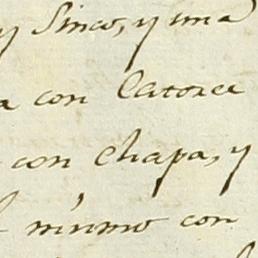 y Sinco, y una
a con Catorce
con Chapa, y
mismo con